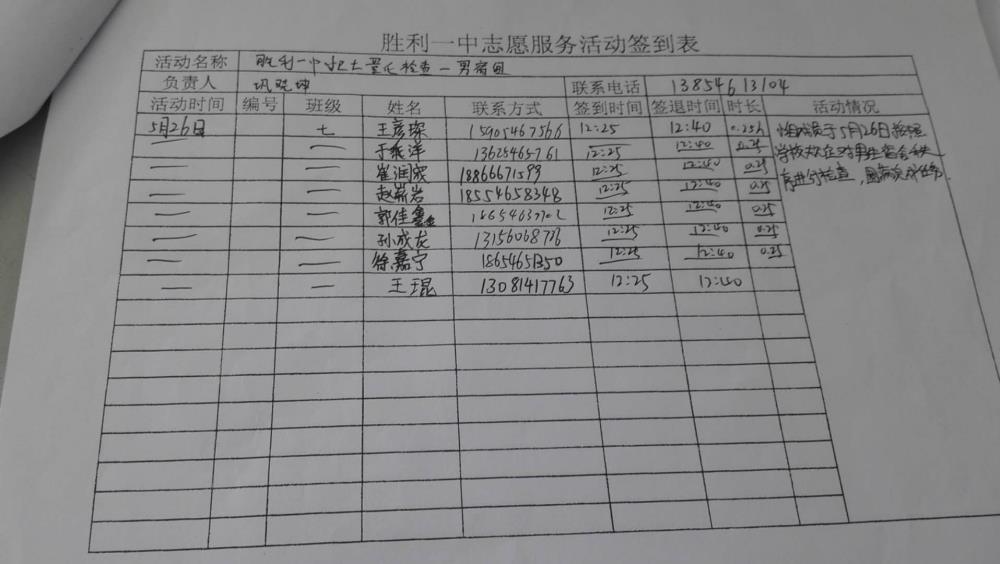 胜利一中志愿服务活动签到表
活动名称 胜利一中卫生量化检查-男宿组
负责人 联系电话 13854613104
活动时间 编号 班级 姓名 联系方式 签到时间 签退时间 时长 活动情况
5月26日 七 王彦琛 15905467566 12:25 12:40 0.25h
— — 于乘洋 13625465761 12:25 12:40 0.25
— — 崔润宸 18866671599 12:25 12:40 0.25
— — 赵崭岩 18554658348 12:25 12:40 0.25
— — 郭佳鑫 12:25 12:40 0.25
— — 孙成龙 12:25 12:40 0.25
— — 徐嘉宁 18654651350 12:25 12:40 0.25
— — 王琨 13081417763 12:25 12:40
员于5月26日按照
学校 对男生宿舍秩
序进行检查,圆满完成任务.